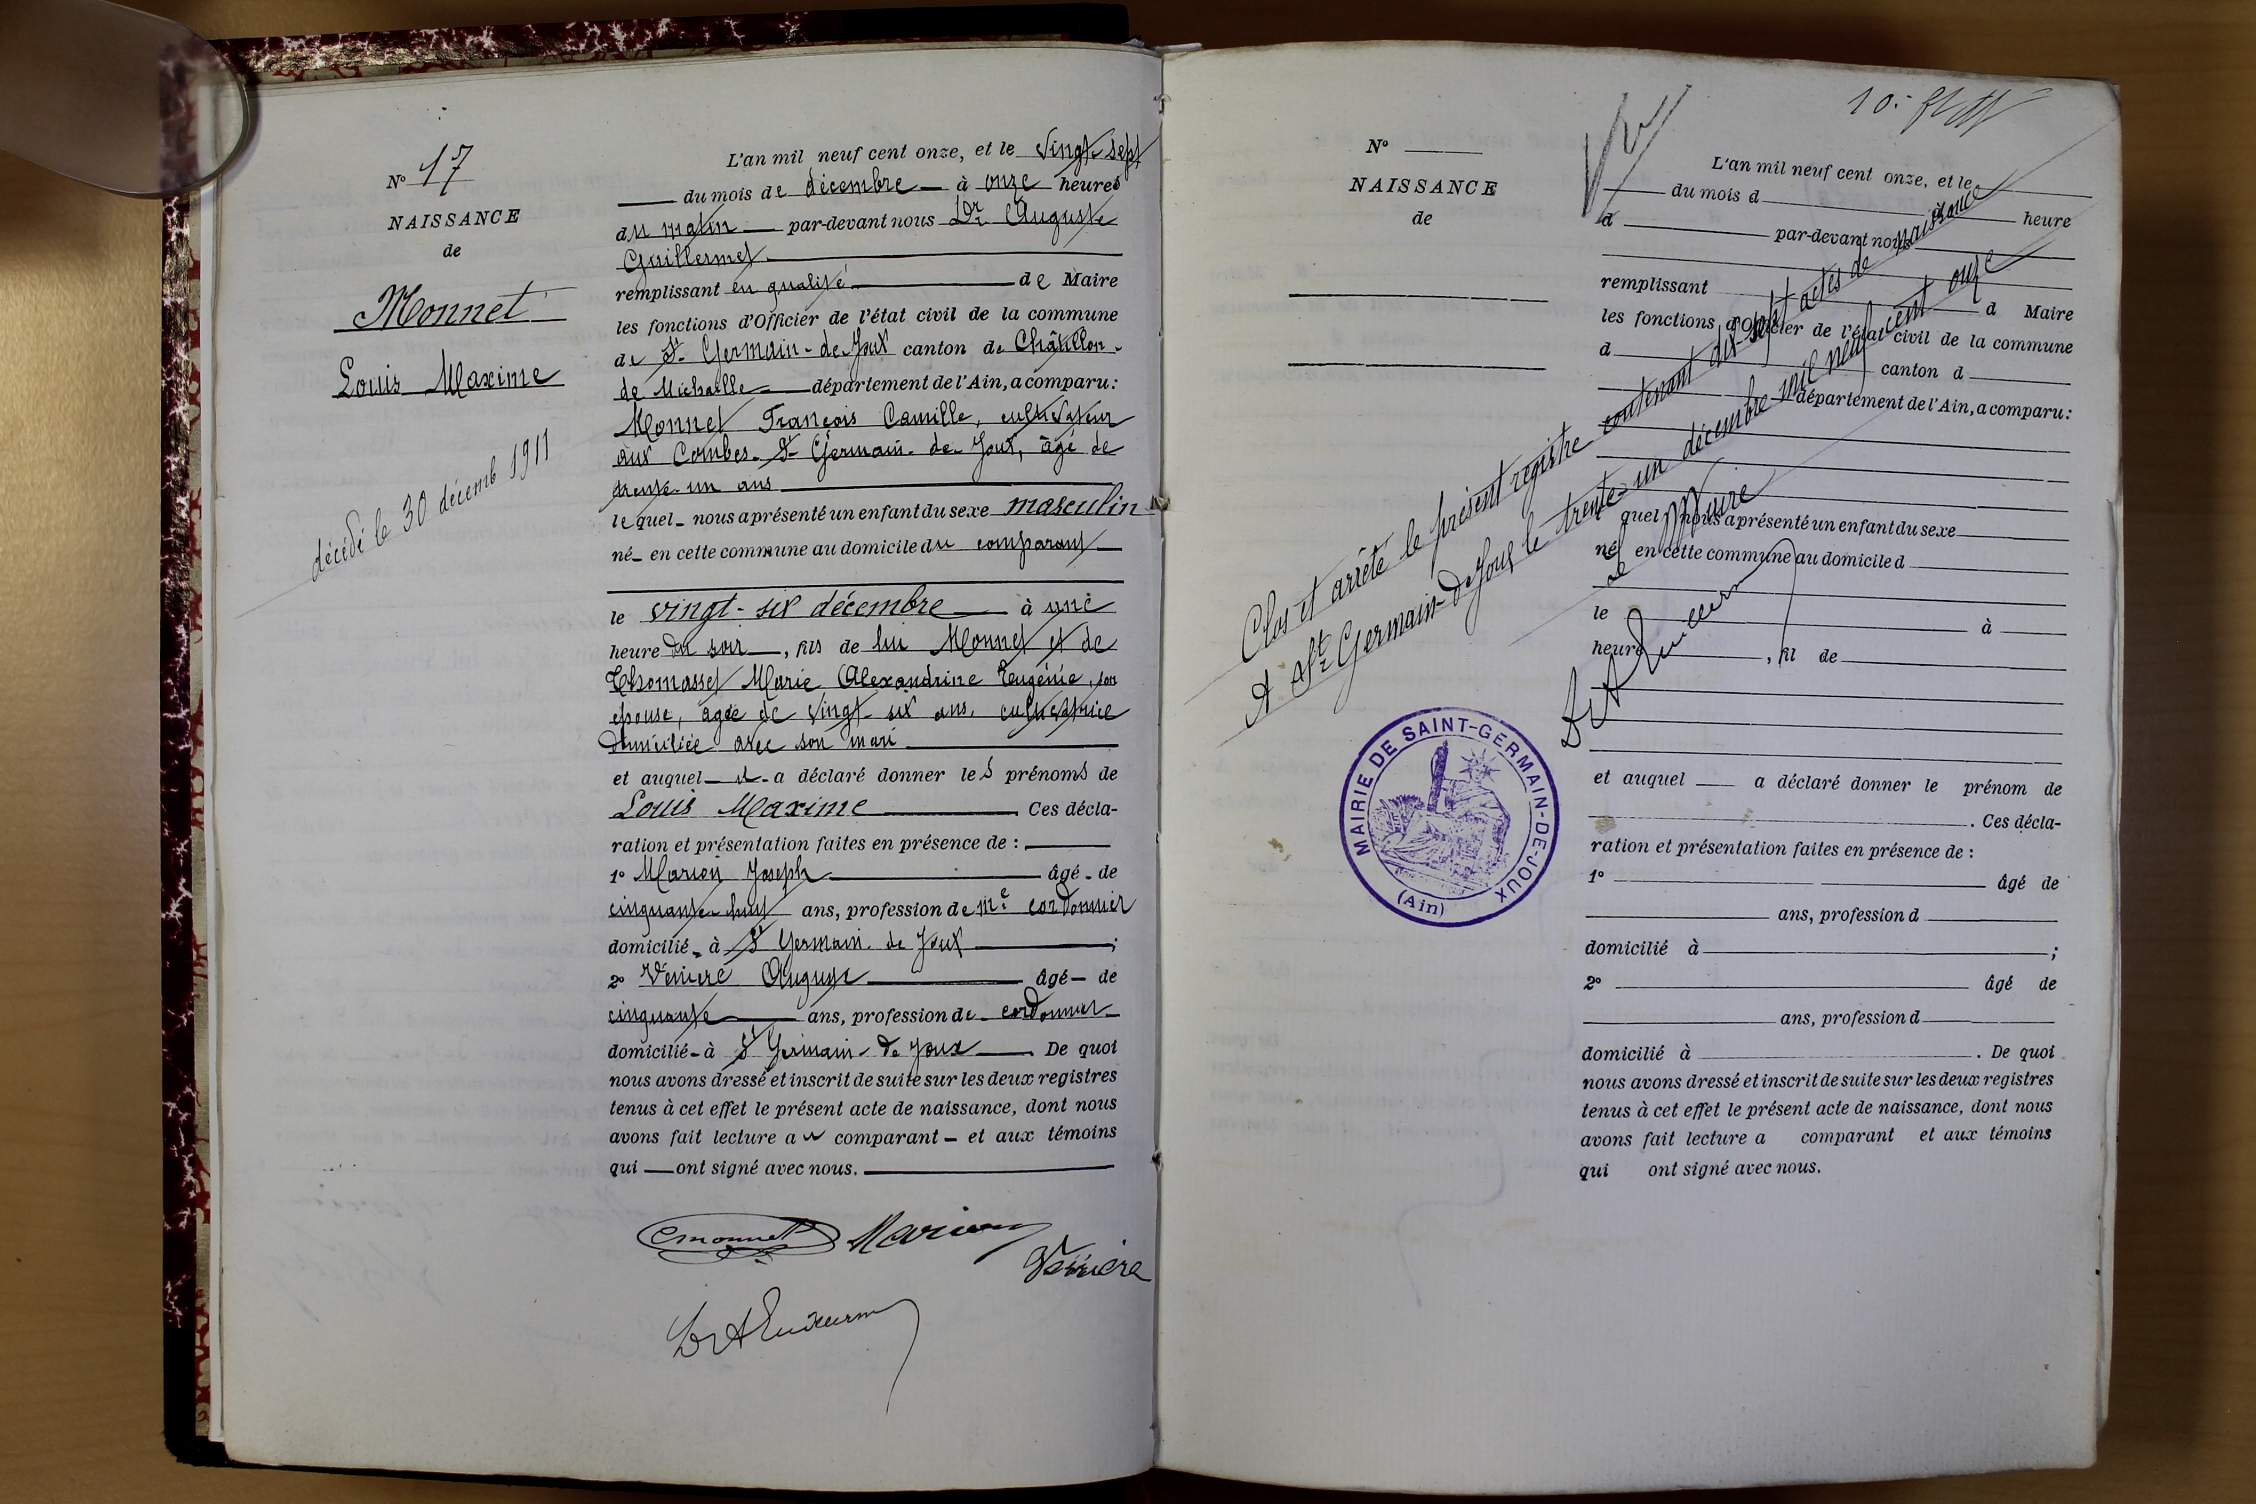 N° 17
NAISSANCE
de
Monnet
Louis Maxime
décédé le 30 décemb 1911
L'an mil neuf cent onze, et le vingt-sept
du mois de décembre à onze heures
du matin par-devant nous Dr Auguste
Guillermet
remplissant en qualité de Maire
les fonctions d'Officier de l'état civil de la commune
de St Germain-de-Joux canton de Châtillon-
de Michaille département de l'Ain, a comparu:
Monnet François Camille, cultivateur
aux Combes-St Germain-de-Joux, âgé de
trente-un ans
lequel nous a présenté un enfant du sexe masculin
né en cette commune au domicile du comparant
le vingt-six décembre à une
heure du soir, fils de lui Monnet et de
Thomasset Marie Alexandrine Eugénie, son
épouse, agée de vingt-six ans, cultivatrice
domiciliée avec son mari
et auquel il a déclaré donner les prénoms de
Louis Maxime Ces décla-
ration et présentation faites en présence de :
1° Marion Joseph âgé de
cinquante-huit ans, profession de me cordonnier
domicilié à St Germain-de-Joux ;
2° Auguste âgé de
cinquante ans, profession de cordonnier
domicilié à St Germain-de-Joux. De quoi
nous avons dressé et inscrit de suite sur les deux registres
tenus à cet effet le présent acte de naissance, dont nous
avons fait lecture au comparant et aux témoins
qui ont signé avec nous.
CMonnet Marion
N°
NAISSANCE
de
L'an mil neuf cent onze, et le
du mois d à heure
d par-devant nous
remplissant d Maire
les fonctions d'Officier de l'état civil de la commune
d canton d
département de l'Ain, a comparu:
quel nous a présenté un enfant du sexe
né en cette commune au domicile d
le à
heure , fil de
et auquel a déclaré donner le prénom de
. Ces décla-
ration et présentation faites en présence de :
1° âgé de
ans, profession d
domicilié à ;
2° âgé de
ans, profession d
domicilié à . De quoi
nous avons dressé et inscrit de suite sur les deux registres
tenus à cet effet le présent acte de naissance, dont nous
avons fait lecture a comparant et aux témoins
qui ont signé avec nous.
Clos et arrêté le présent registre contenant dix-sept actes de naissance
A St Germain-de-Joux le trente-un décembre mil neuf cent onze
Le Maire
MAIRIE DE SAINT-GERMAIN-DE-JOUX
(Ain)